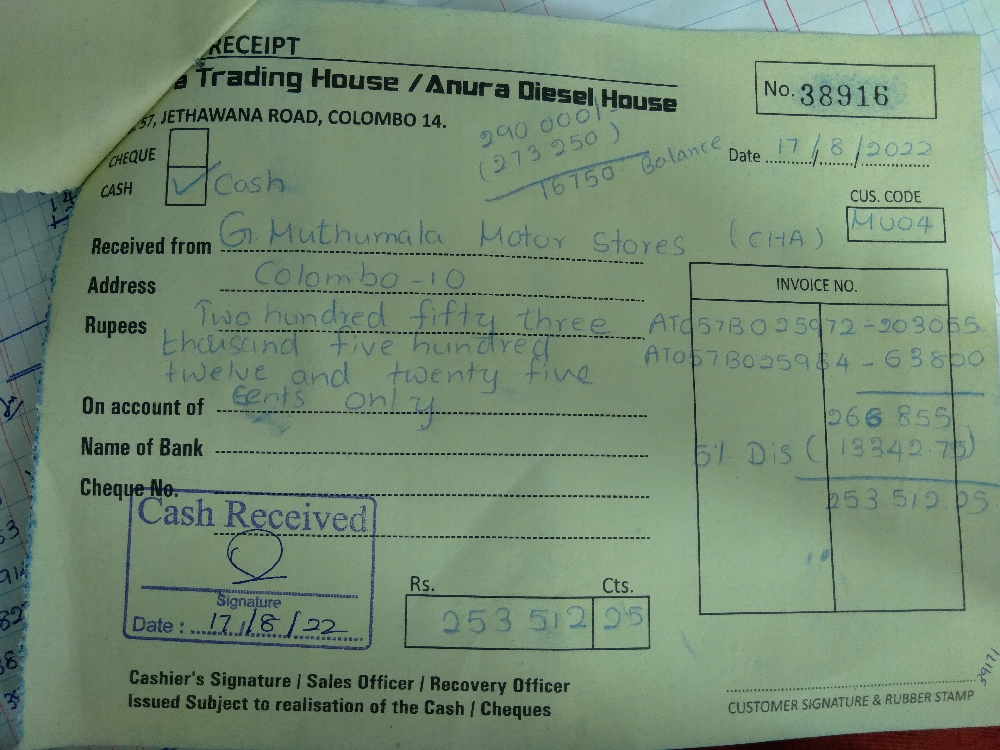 RECEIPT
Trading House / Anura Diesel House
No. 38916
57, JETHAWANA ROAD, COLOMBO 14.
290 000/-
(273 250)
16750 Balance
Date 17/8/2022
CHEQUE
CASH ✓ Cash
CUS. CODE
MU04
Received from G. Muthumala Motor Stores (CHA)
Address Colombo-10
INVOICE NO.
Rupees Two hundred fifty three
thousand five hundred
twelve and twenty five
cents only
AT057B025972-203055
AT057B025984-63800
266 855
5% Dis (13342.75)
253 512.25
On account of
Name of Bank
Cheque No.
Cash Received
Signature
Date : 17/8/22
Rs. Cts.
253 512 25
Cashier's Signature / Sales Officer / Recovery Officer
Issued Subject to realisation of the Cash / Cheques
CUSTOMER SIGNATURE & RUBBER STAMP
39171